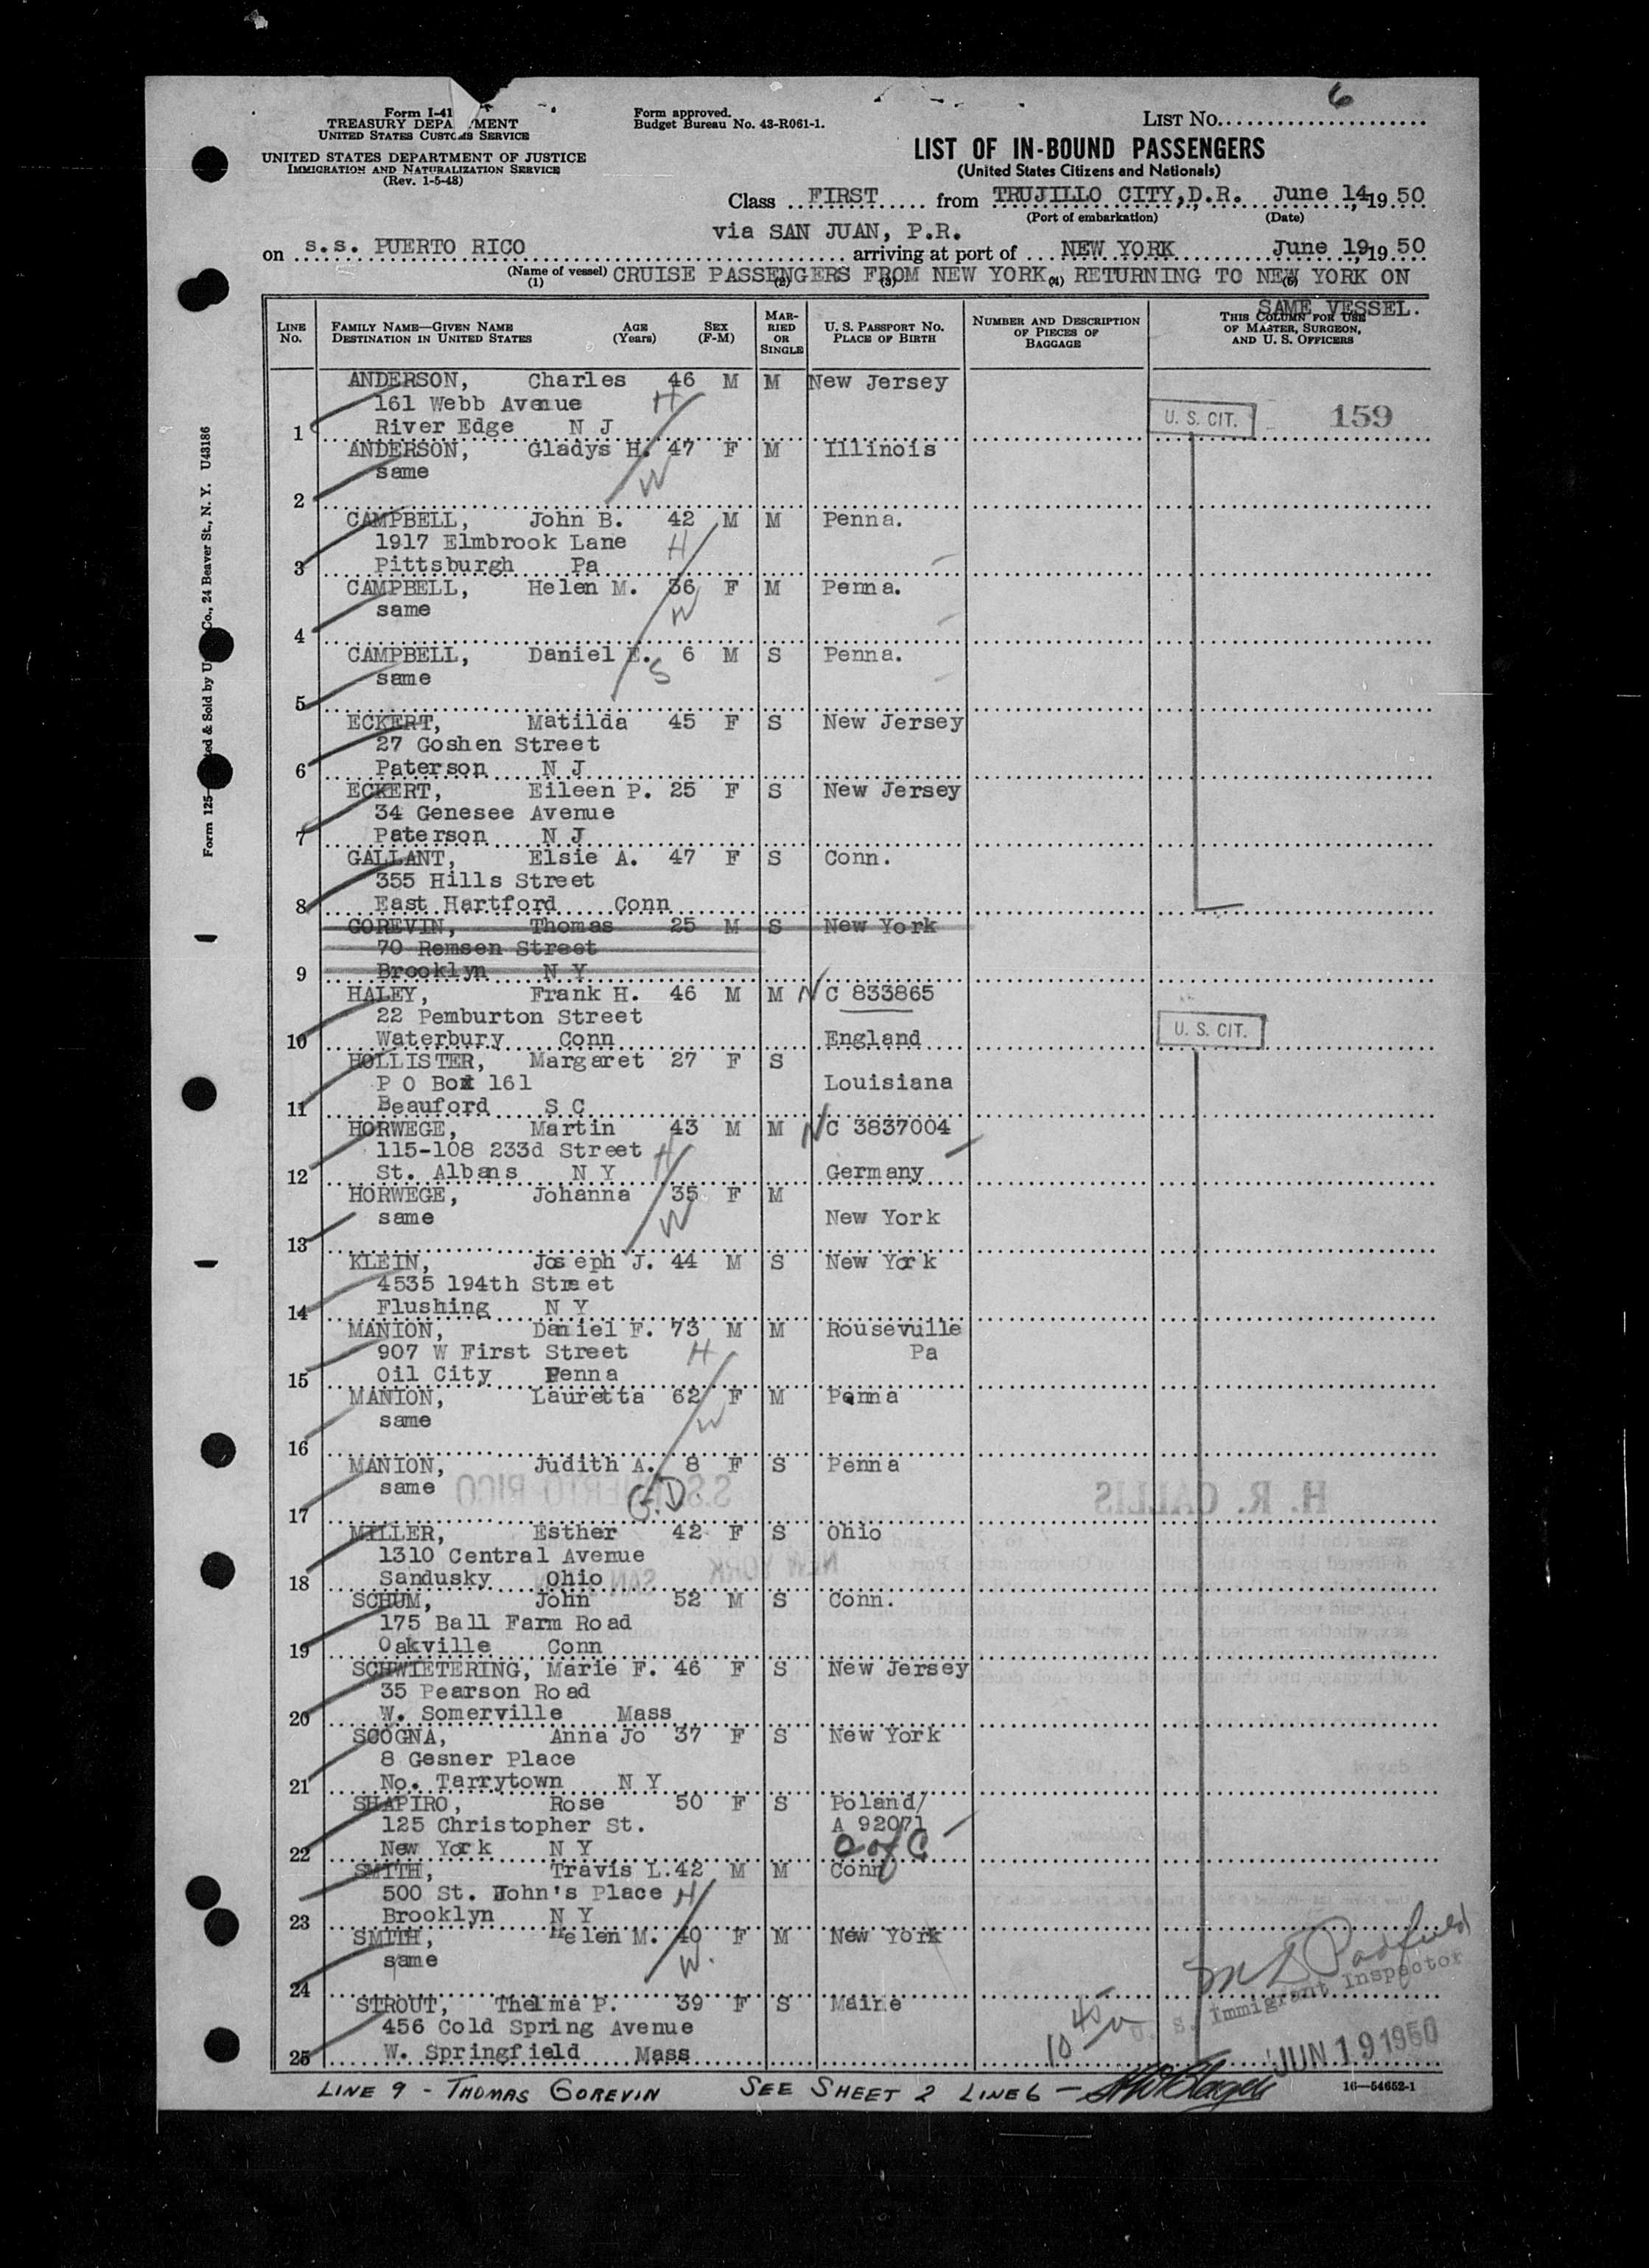 6
Form I-41
TREASURY DEPA MENT
UNITED STATES CUSTOMS SERVICE
Form approved.
Budget Bureau No. 43-R061-1.
LIST No.
UNITED STATES DEPARTMENT OF JUSTICE
IMMIGRATION AND NATURALIZATION SERVICE
(Rev. 1-5-48)
LIST OF IN-BOUND PASSENGERS
(United States Citizens and Nationals)
Class FIRST from TRUJILLO CITY, D.R. June 14, 19 50
(Port of embarkation) (Date)
via SAN JUAN, P.R.
on s.s. PUERTO RICO arriving at port of NEW YORK June 19, 19 50
(Name of vessel) CRUISE PASSENGERS FROM NEW YORK, RETURNING TO NEW YORK ON
(1) (2) (3) (4) (5)
SAME VESSEL.
LINE No. FAMILY NAME—GIVEN NAME DESTINATION IN UNITED STATES AGE (Years) SEX (F-M) MARRIED OR SINGLE U. S. PASSPORT No. PLACE OF BIRTH NUMBER AND DESCRIPTION OF PIECES OF BAGGAGE THIS COLUMN FOR USE OF MASTER, SURGEON, AND U. S. OFFICERS
ANDERSON, Charles 46 M M New Jersey
161 Webb Avenue H
1 River Edge N J U. S. CIT. 159
ANDERSON, Gladys H. 47 F M Illinois
same W
2
CAMPBELL, John B. 42 M M Penna.
1917 Elmbrook Lane H
3 Pittsburgh Pa
CAMPBELL, Helen M. 36 F M Penna.
same W
4
CAMPBELL, Daniel E. 6 M S Penna.
same S
5
ECKERT, Matilda 45 F S New Jersey
27 Goshen Street
6 Paterson N J
ECKERT, Eileen P. 25 F S New Jersey
34 Genesee Avenue
7 Paterson N J
GALLANT, Elsie A. 47 F S Conn.
355 Hills Street
8 East Hartford Conn
GOREVIN, Thomas 25 M S New York
70 Remsen Street
9 Brooklyn N Y
HALEY, Frank H. 46 M M C 833865
22 Pemburton Street
10 Waterbury Conn England U. S. CIT.
HOLLISTER, Margaret 27 F S
P O Box 161 Louisiana
11 Beauford S C
HORWEGE, Martin 43 M M C 3837004
115-108 233d Street H
12 St. Albans N Y Germany
HORWEGE, Johanna 35 F M
same W New York
13
KLEIN, Joseph J. 44 M S New York
4535 194th Street
14 Flushing N Y
MANION, Daniel F. 73 M M Rouseville
907 W First Street H Pa
15 Oil City Penna
MANION, Lauretta 62 F M Penna
same W
16
MANION, Judith A. 8 F S Penna
same G.D.
17
MILLER, Esther 42 F S Ohio
1310 Central Avenue
18 Sandusky Ohio
SCHUM, John 52 M S Conn.
175 Ball Farm Road
19 Oakville Conn
SCHWIETERING, Marie F. 46 F S New Jersey
35 Pearson Road
20 W. Somerville Mass
SCOGNA, Anna Jo 37 F S New York
8 Gesner Place
21 No. Tarrytown N Y
SHAPIRO, Rose 50 F S Poland/
125 Christopher St. A 92071
22 New York N Y C of C
SMITH, Travis L. 42 M M Conn
500 St. John's Place H
23 Brooklyn N Y
SMITH, Helen M. 40 F M New York
same W.
24
STROUT, Thelma P. 39 F S Maine
456 Cold Spring Avenue
25 W. Springfield Mass
U. S. Immigrant Inspector
JUN 19 1950
LINE 9 - THOMAS GOREVIN SEE SHEET 2 LINE 6 -
16—54652-1
Co., 24 Beaver St., N. Y. U43186